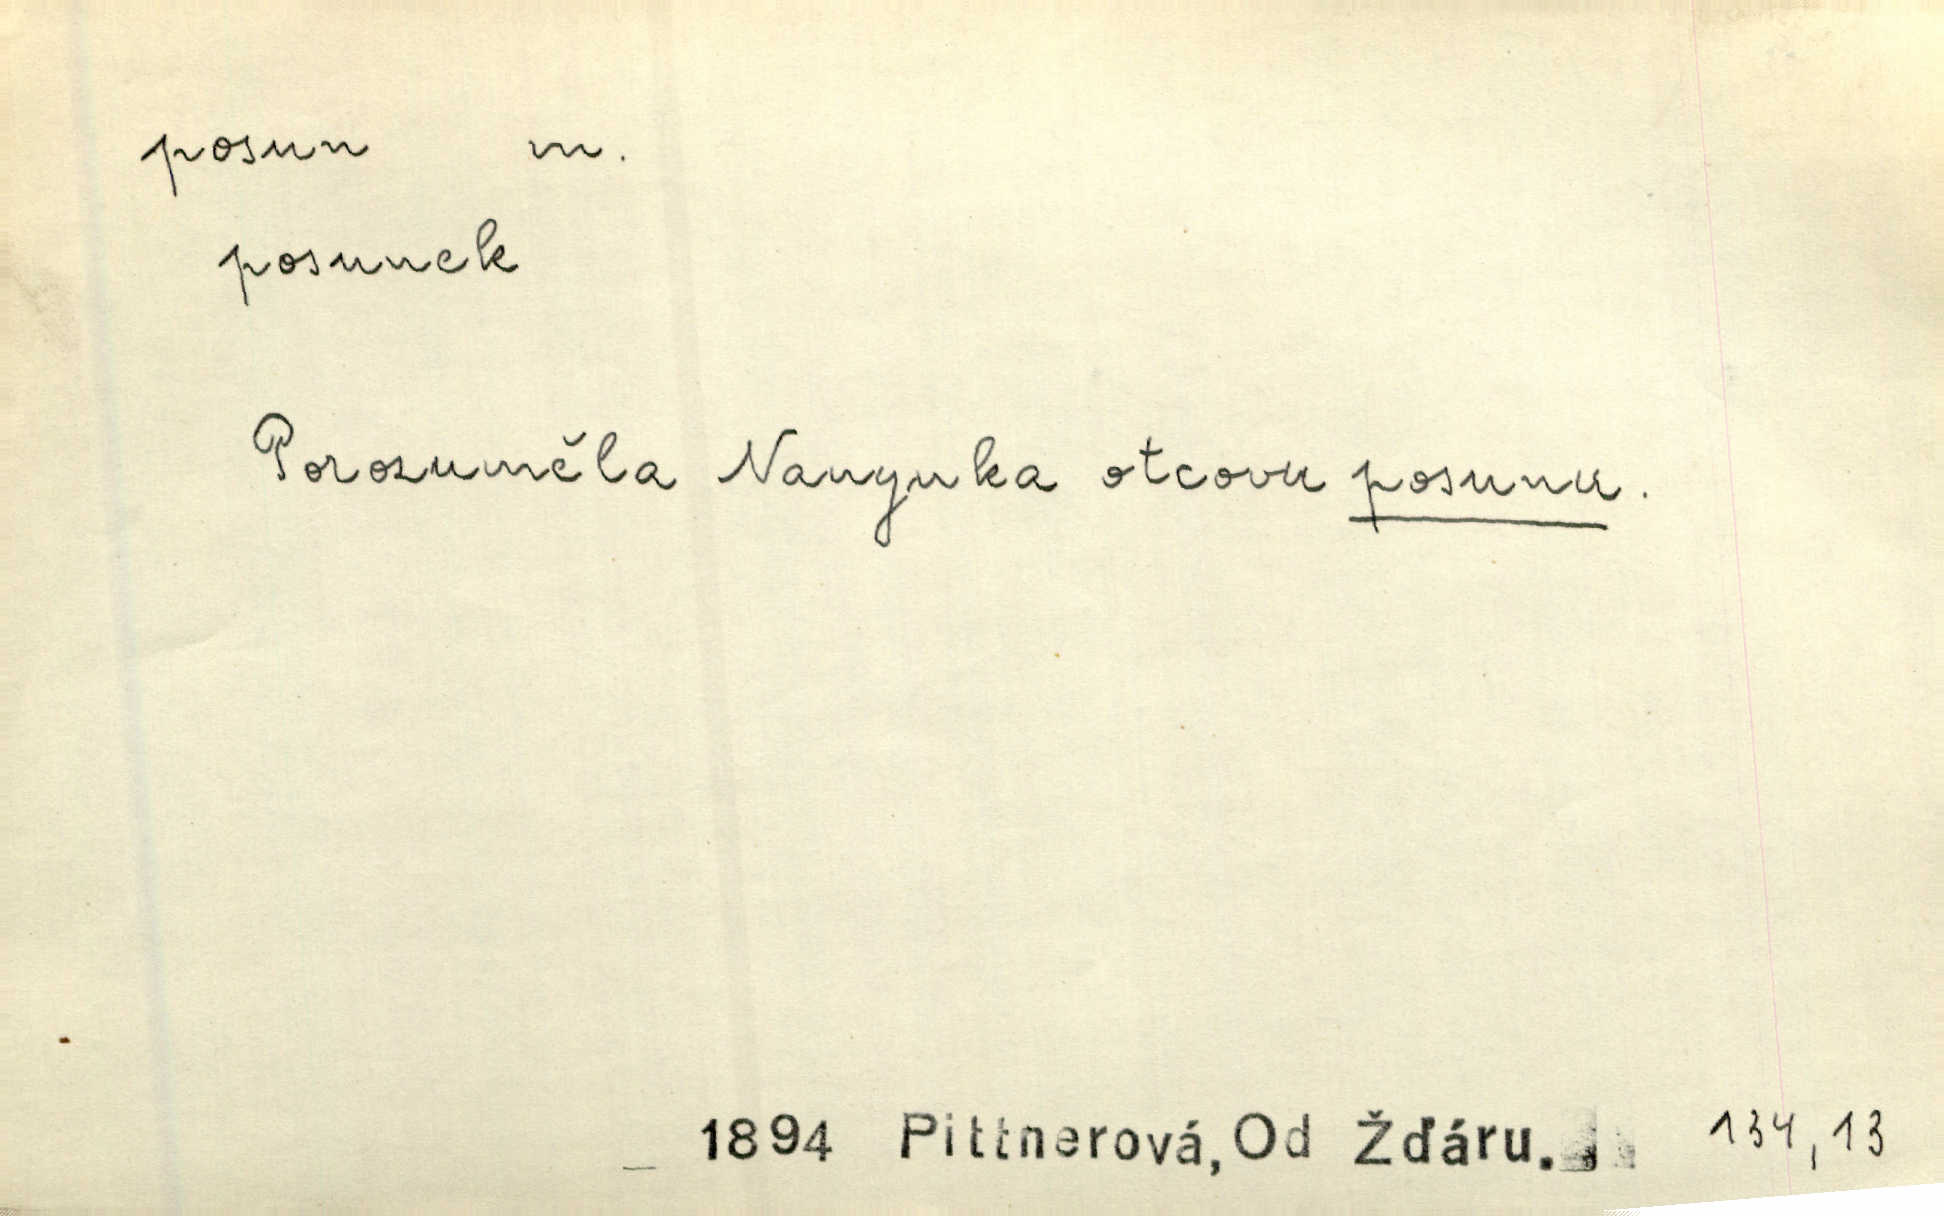 posun m.
posunek
Porozuměla Nanynka otcovu posunu.
1894 Pittnerová, Od Žďáru. 134,13